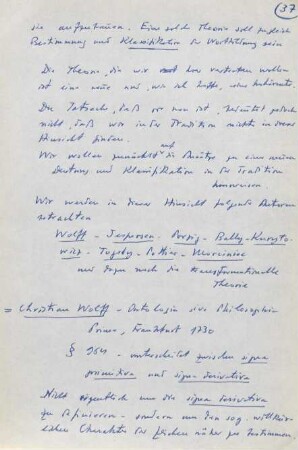 37
sie aufzubauen. Eine solche Theorie soll zugleich
Bestimmung und Klassifikation der Wortbildung sein
Die Theorie, die wir hier vertreten wollen
ist eine neue und, wie ich hoffe, eine bekannte.
Die Tatsache, daß sie neu ist, bedeutet jedoch
nicht, daß wir in der Tradition nichts in dieser
Hinsicht finden.
Wir wollen zunächst auf die Ansätze zu einer neuen
Deutung und Klassifikation in der Tradition
hinweisen
Wir werden in dieser Hinsicht folgende Autoren
betrachten
Wolff - Jespersen - Porzig - Bally - Kuryło-
wicz - Togeby - Pottier - Marciniec
und sogar noch die transformationelle
Theorie
= Christian Wolff - Ontologia sive Philosophia
Prima, Frankfurt 1730
§ 964 - unterscheidet zwischen signa
primitiva und signa derivativa
Nicht eigentlich um die signa derivativa
zu definieren - sondern um den sog. willkür-
lichen Charakter der Zeichen näher zu bestimmen.